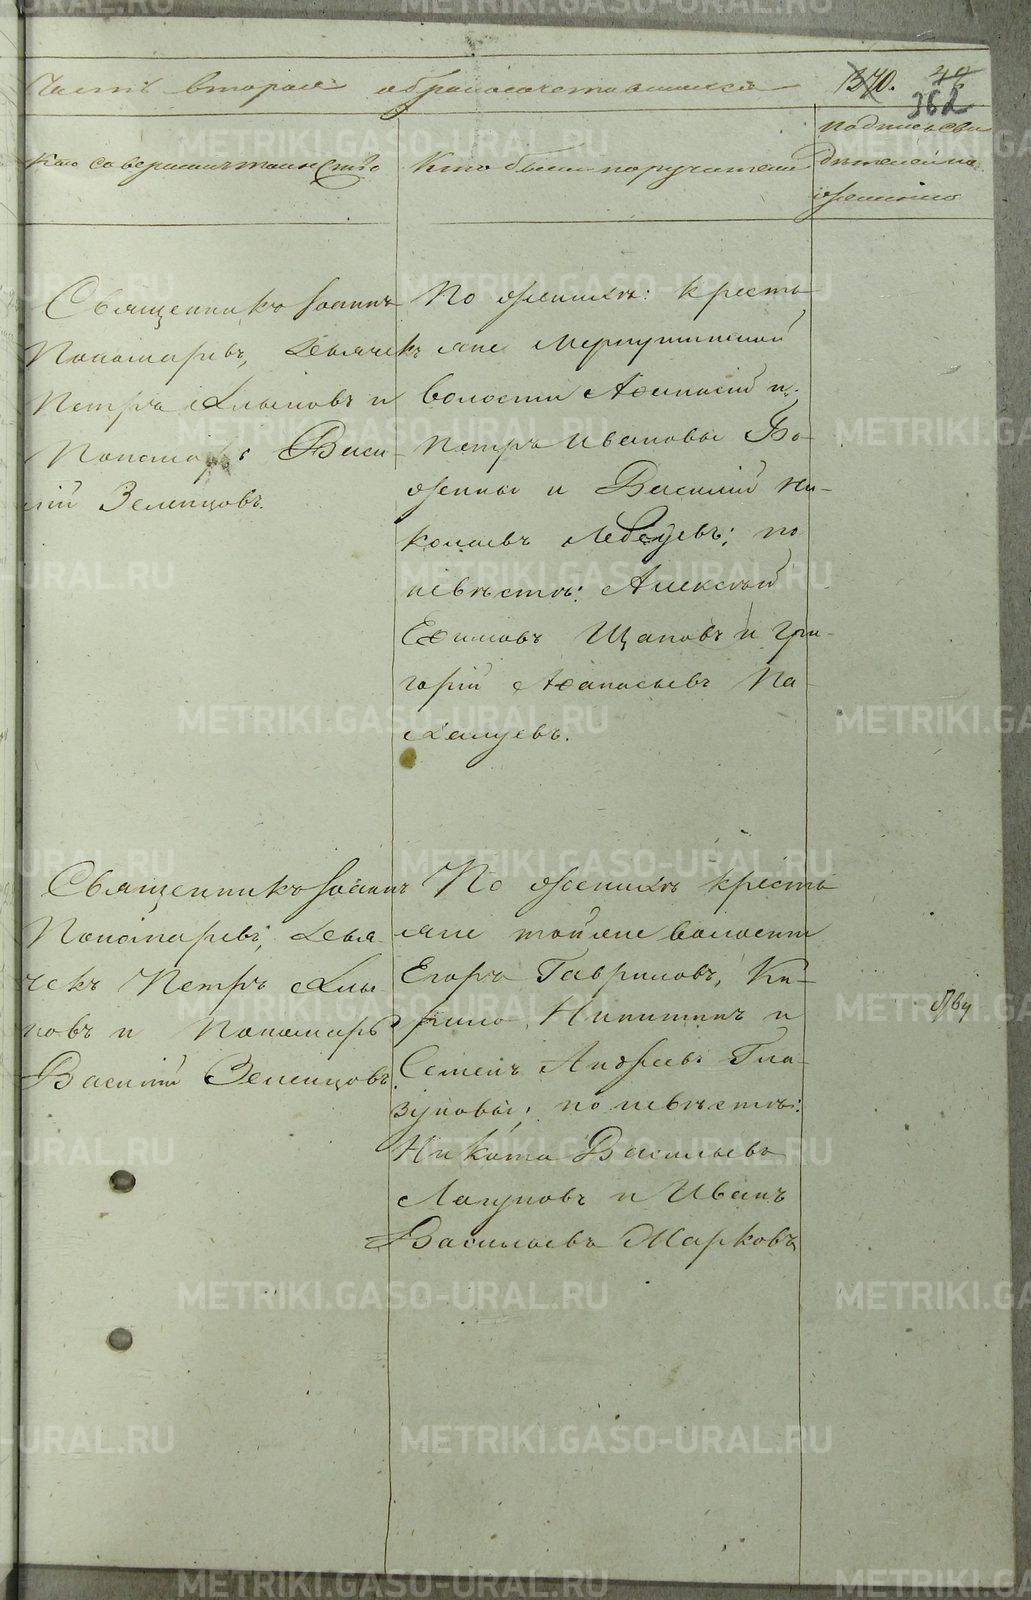 Часть вторая о бракосочетавшихся
1370.
362
Кто совершилъ таинство
Кто были поручители
Подпись сви
дѣтелей по
желанію
Священникъ Іоаннъ
Пономаревъ, Дьячекъ
Петръ Алыповъ и
Пономарь Васи
лій Зеленцовъ.
По женихѣ: кресть
яне Меркушинской
волости Аѳанасій и
Петръ Ивановы Бо-
женны и Василій Ни-
колаевъ Лебедевъ; по
невѣстѣ: Алексѣй
Еѳимовъ Щаповъ и Гри-
горій Аѳанасьевъ Па
далуевъ.
Священникъ Іоаннъ
Пономаревъ, Дья
чекъ Петръ Алы
повъ и Пономарь
Василій Зеленцовъ.
По женихѣ кресть
яне той же волости
Егоръ Гавриловъ, Ки-
рило Никитинъ и
Семенъ Андреевъ Гла-
зуновы; по невѣстѣ:
Никита Васильевъ
Лагуновъ и Иванъ
Васильевъ Марковъ
METRIKI.GASO-URAL.RU